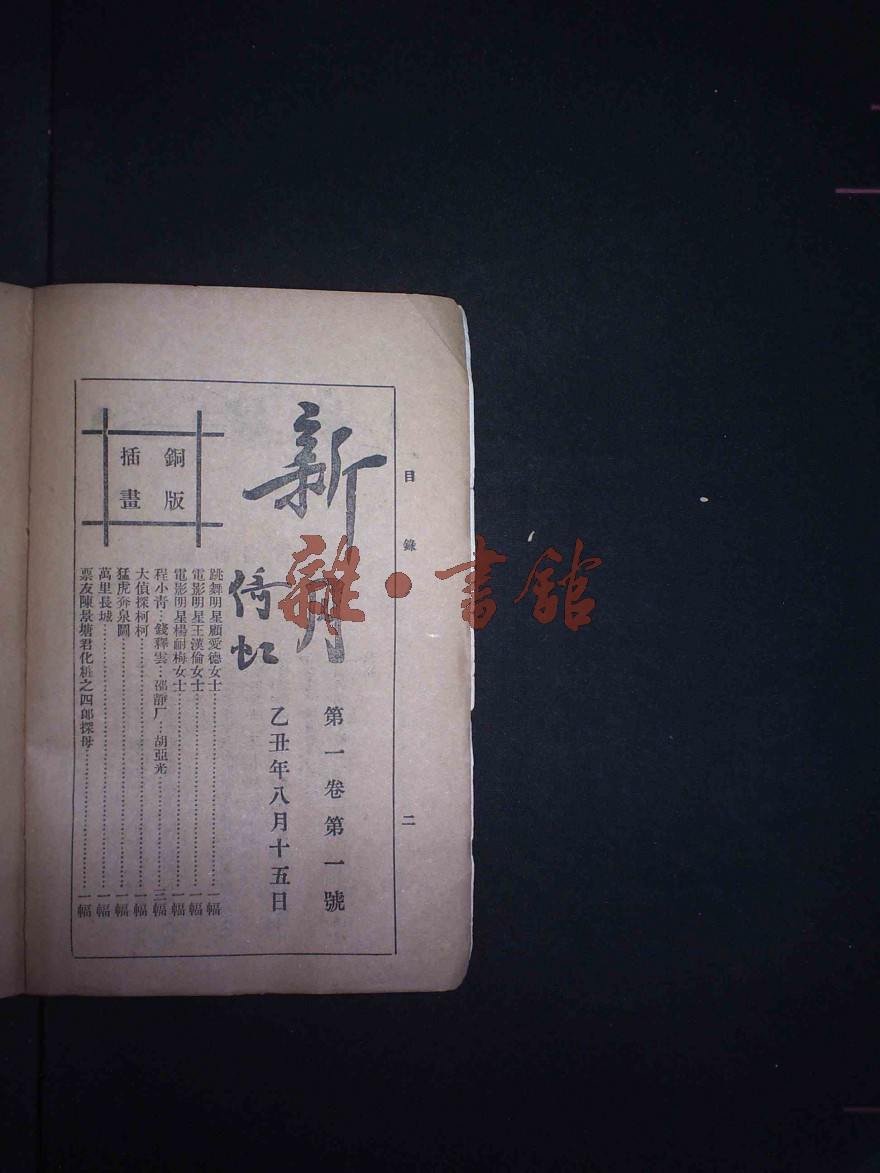 目錄
二
新月
倚虹
第一卷第一號
乙丑年八月十五日
銅版
插畫
跳舞明星顧愛德女士…………一幅
電影明星王漢倫女士…………一幅
電影明星楊耐梅女士…………一幅
程小青…錢釋雲…邵靜厂…胡亞光…………三幅
大偵探柯柯…………一幅
猛虎奔泉圖…………一幅
萬里長城…………一幅
票友陳景塘君化粧之四郎探母…………一幅
雜·書館